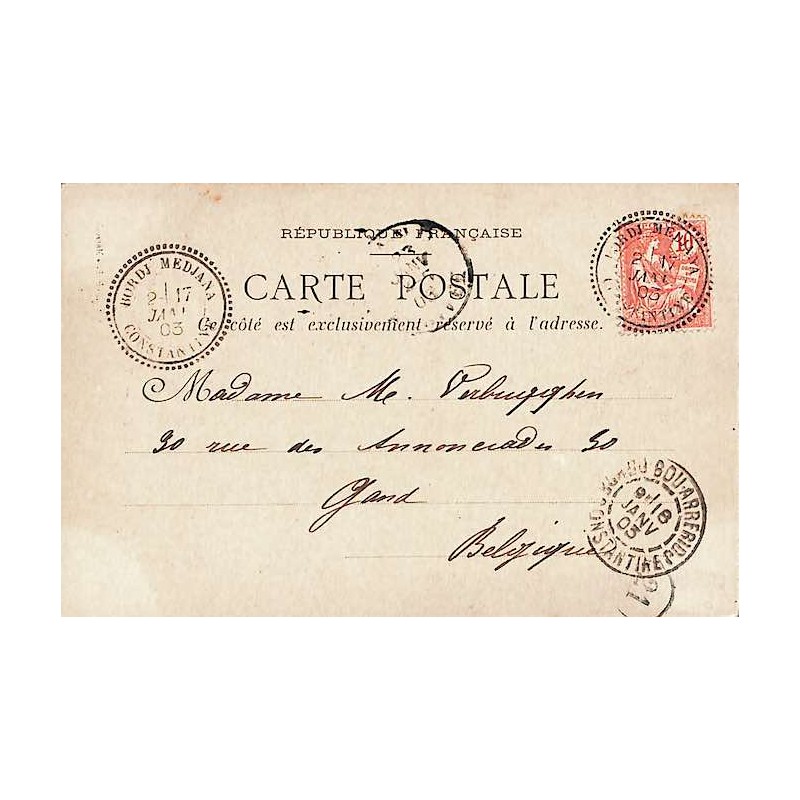 RÉPUBLIQUE FRANÇAISE
CARTE POSTALE
Ce côté est exclusivement réservé à l'adresse.
BORDJ MEDJANA
2-17
JANV
03
CONSTANTINE
BORDJ MEDJANA
2 17
JANV
03
CONSTANTINE
10
Madame M. Verbrugghen
30 rue des Annonciades 30
Gand
Belgique
BORDJ BOU-ARRERIDJ
9-18
JANV
03
CONSTANTINE
21